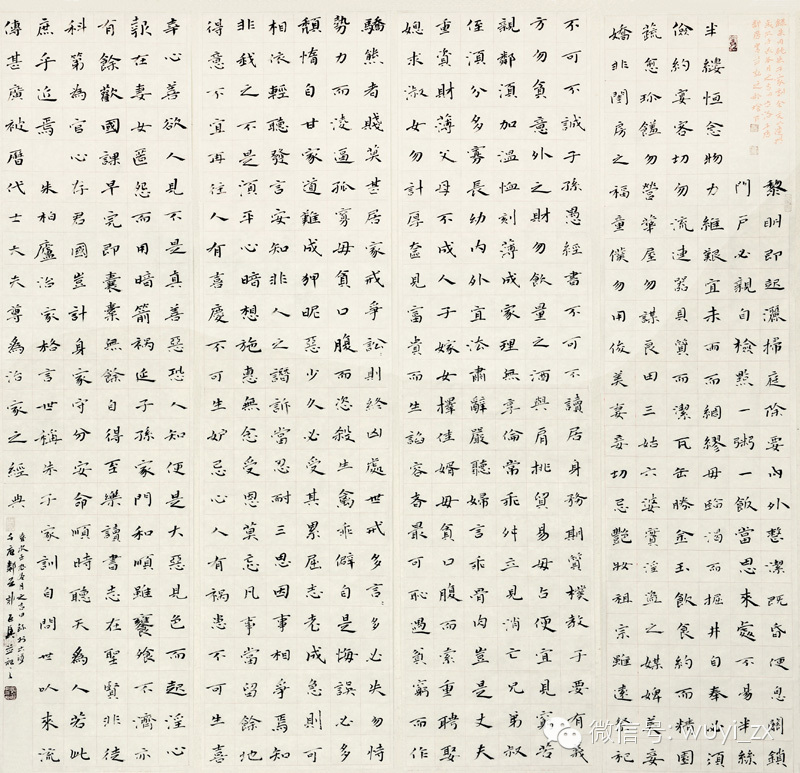 黎明即起灑掃庭除要內外整潔既昏便息關鎖
門戶必親自檢點一粥一飯當思來處不易半絲
半縷恒念物力維艱宜未雨而綢繆毋臨渴而掘井自奉必須
儉約宴客切勿流連器具質而潔瓦缶勝金玉飲食約而精園
蔬愈珍饈勿營華屋勿謀良田三姑六婆實淫盜之媒婢美妾
嬌非閨房之福童僕勿用俊美妻妾切忌艷妝祖宗雖遠祭祀
不可不誠子孫愚經書不可不讀居身務期質樸教子要有義
方勿貪意外之財勿飲量之酒與肩挑貿易毋占便宜見窮苦
親鄰須加溫恤刻薄成家理無享倫常乖舛立見消亡兄弟叔
侄須分多寡長幼內外宜法肅辭嚴聽婦言乖骨肉豈是丈夫
重資財薄父母不成人子嫁女擇佳婿毋貪口腹而重聘娶
媳求淑女勿計厚奩見富貴而生諂容者最可恥遇貧窮而作
驕態者賤莫甚居家戒爭訟則終凶處世戒多言多必失勿恃
勢力而淩逼孤寡毋貪口腹而恣殺生禽乖僻自是悔誤必多
頹惰自甘家道難成狎昵惡少久必受其累屈志老成急則可
相依輕聽發言安知非人之譖訴當忍耐三思因事相爭焉知
非我之不是須平心暗想施惠無念受恩莫忘凡事當留餘地
得意不宜再往人有喜慶不可生妒忌心人有禍患不可生喜
幸心善欲人見不是真善惡恐人知便是大惡見色而起淫心
報在妻女匿怨而用暗箭禍延子孫家門和順雖饔飧不濟亦
有餘歡國課早完即囊橐無餘自得至樂讀書志在聖賢非徒
科第為官心存君國豈計身家守分安命順時聽天為人若此
庶乎近焉 朱柏廬治家格言世稱朱子家訓自問世以來流
傳甚廣被歷代士大夫尊為治家之經典
微信号：wuyi_zx